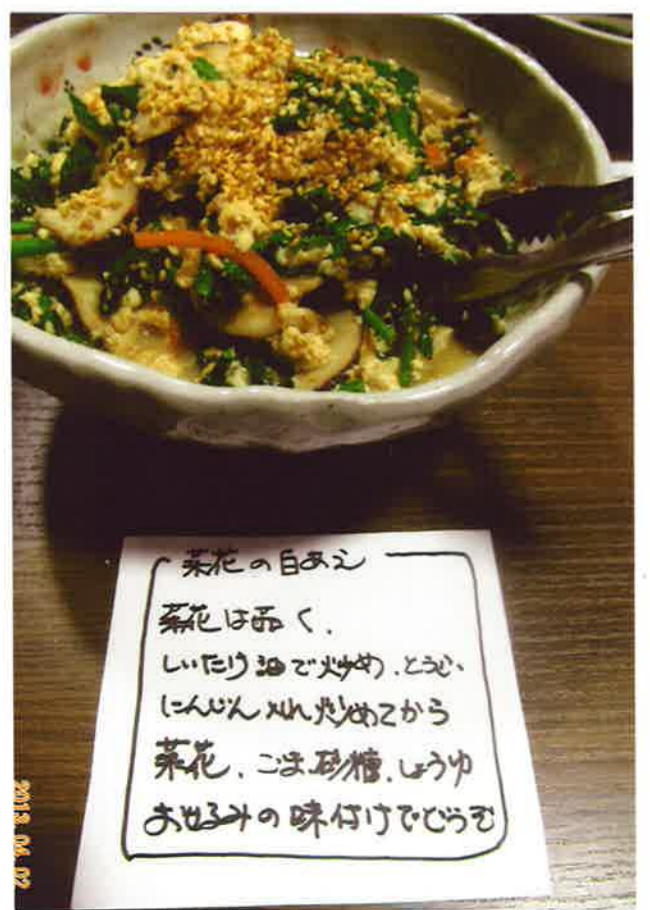 菜花の白あえ
菜花は茹く、
しいたけ油で炒め、とうふ、
にんじん入れ炒めてから
菜花、ごま、砂糖、しょうゆ
おせるみの味付けでどうぞ
2013.04.02